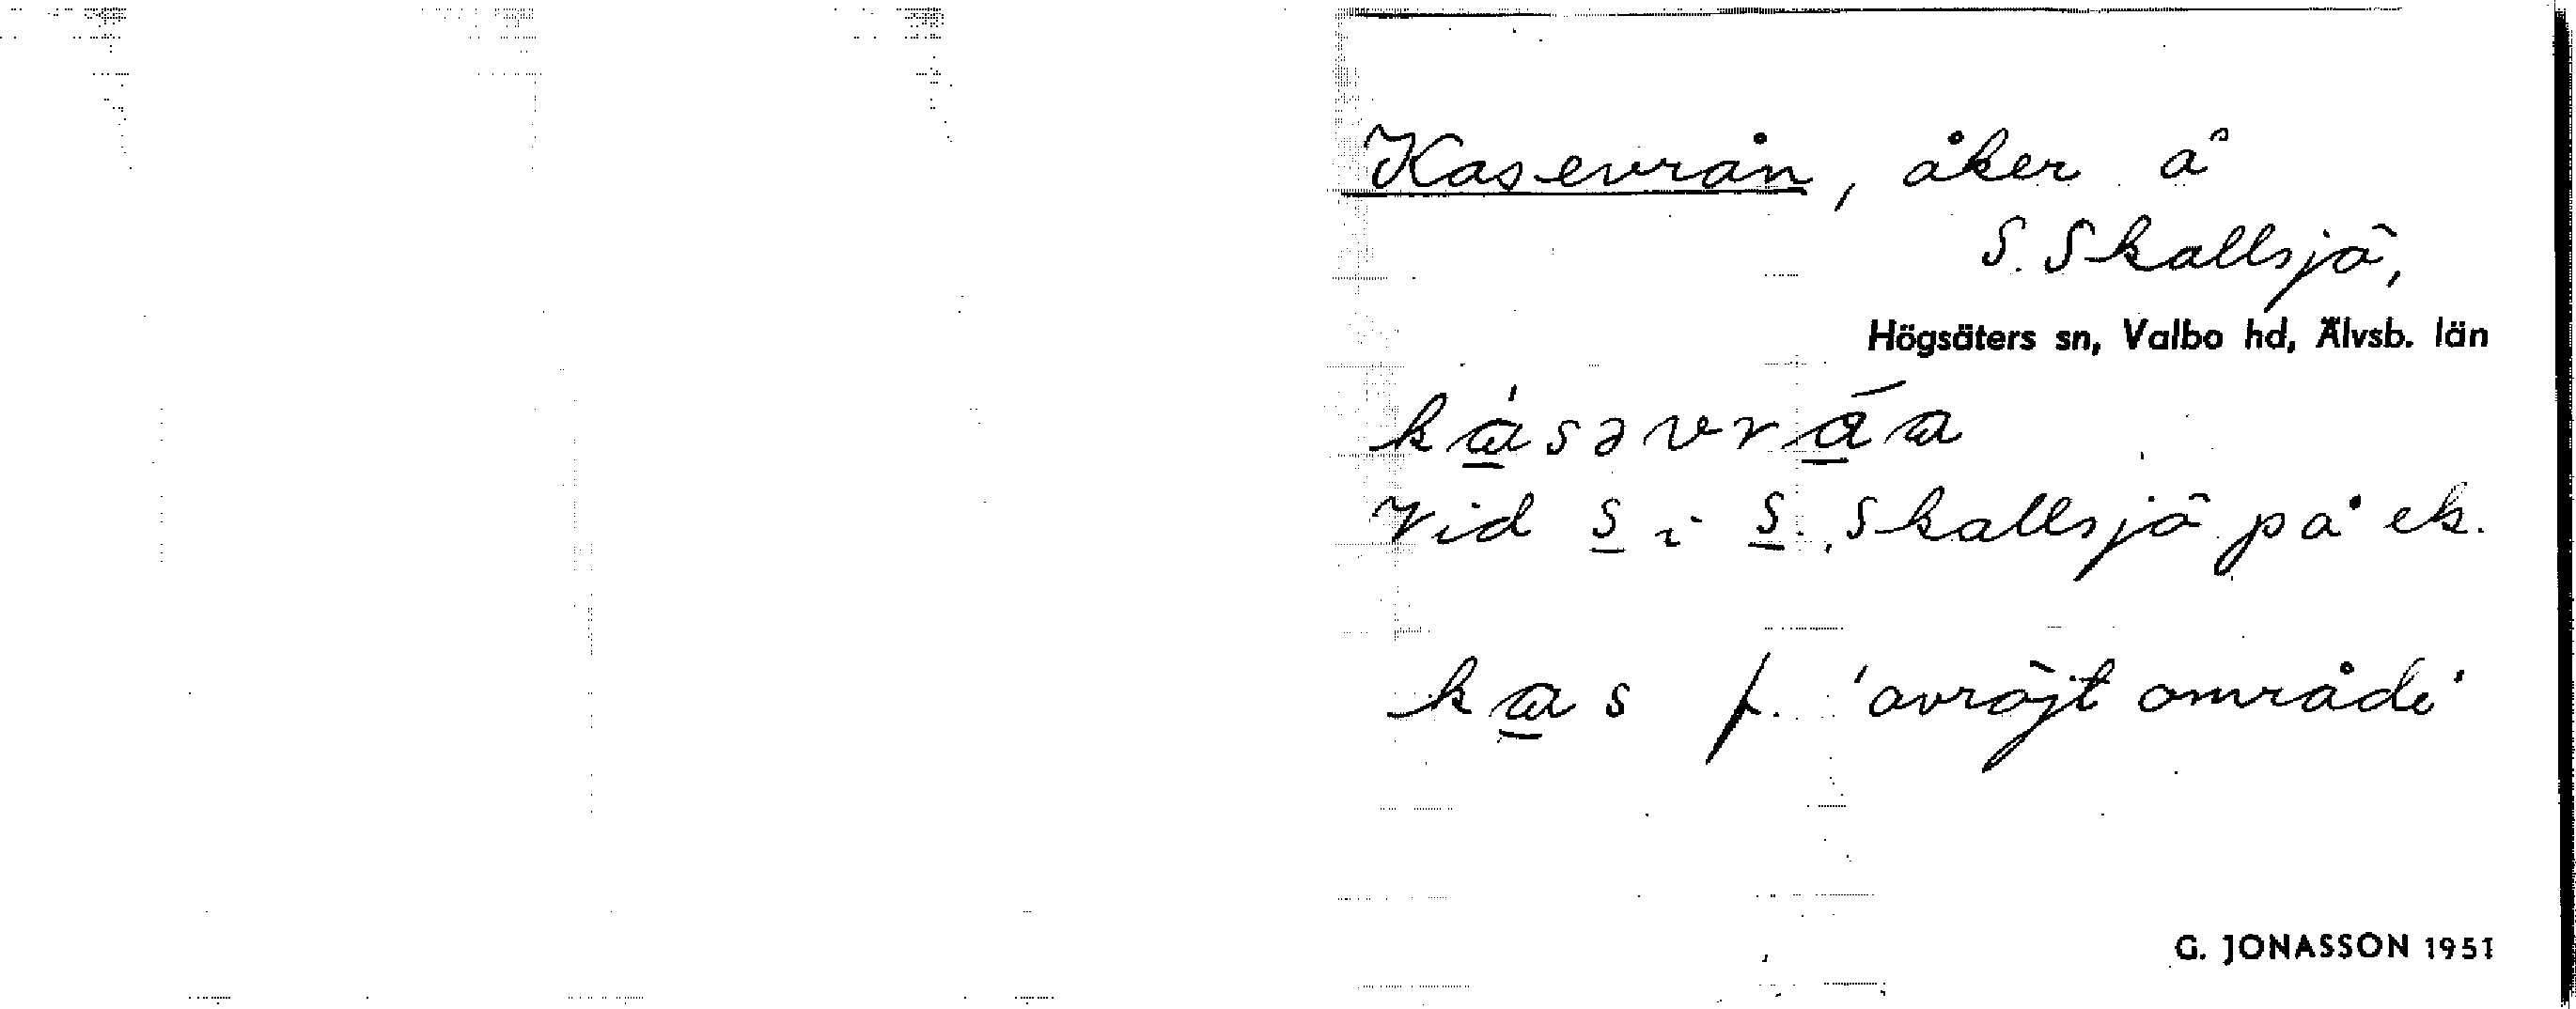 Kasevrån, åker å
S. Skallsjö,
Högsäters sn, Valbo hd, Älvsb. län
kasəvråa
Vid S i S. Skallsjö på ek.
kas f. 'avröjt område'
G. JONASSON 1951